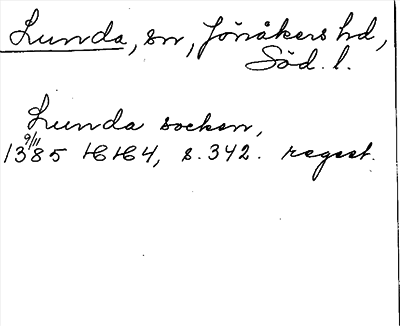 Lunda, sn, Jönåkers hd,
Söd. l.
Lunda socken,
9/11
1385 HH 4, s. 342. regest.